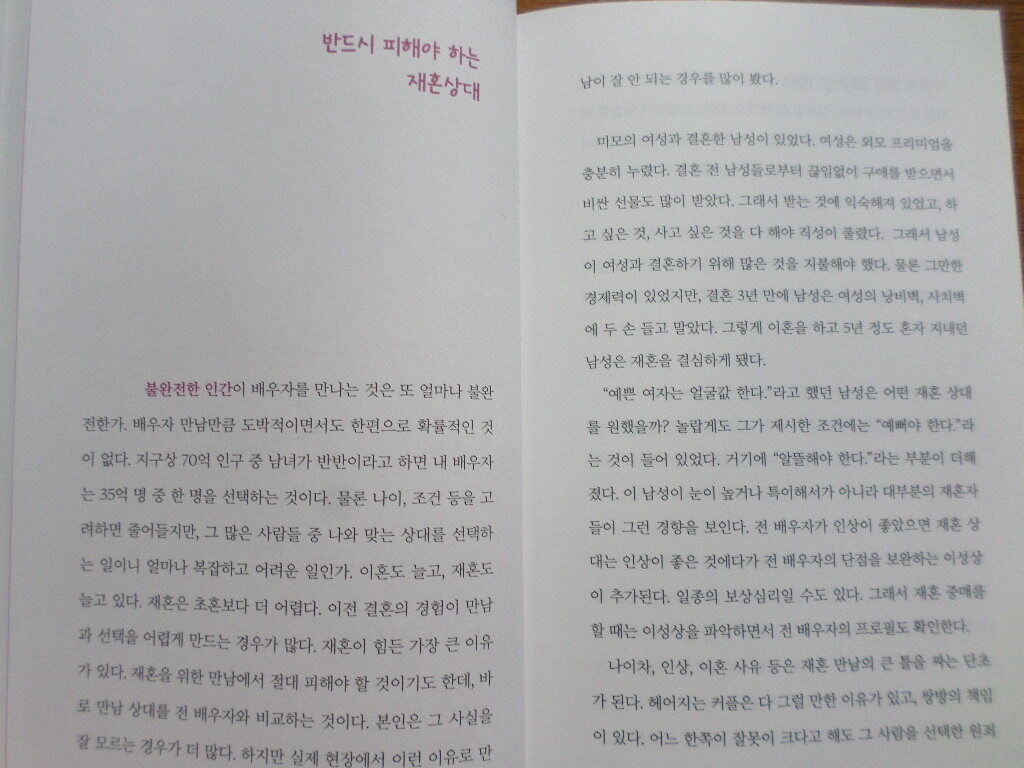 반드시 피해야 하는
재혼상대
불완전한 인간이 배우자를 만나는 것은 또 얼마나 불완
전한가. 배우자 만남만큼 도박적이면서도 한편으로 확률적인 것
이 없다. 지구상 70억 인구 중 남녀가 반반이라고 하면 내 배우자
는 35억 명 중 한 명을 선택하는 것이다. 물론 나이, 조건 등을 고
려하면 줄어들지만, 그 많은 사람들 중 나와 맞는 상대를 선택하
는 일이니 얼마나 복잡하고 어려운 일인가. 이혼도 늘고, 재혼도
늘고 있다. 재혼은 초혼보다 더 어렵다. 이전 결혼의 경험이 만남
과 선택을 어렵게 만드는 경우가 많다. 재혼이 힘든 가장 큰 이유
가 있다. 재혼을 위한 만남에서 절대 피해야 할 것이기도 한데, 바
로 만남 상대를 전 배우자와 비교하는 것이다. 본인은 그 사실을
잘 모르는 경우가 더 많다. 하지만 실제 현장에서 이런 이유로 만
남이 잘 안 되는 경우를 많이 봤다.
미모의 여성과 결혼한 남성이 있었다. 여성은 외모 프리미엄을
충분히 누렸다. 결혼 전 남성들로부터 끊임없이 구애를 받으면서
비싼 선물도 많이 받았다. 그래서 받는 것에 익숙해져 있었고, 하
고 싶은 것, 사고 싶은 것을 다 해야 직성이 풀렸다. 그래서 남성
이 여성과 결혼하기 위해 많은 것을 지불해야 했다. 물론 그만한
경제력이 있었지만, 결혼 3년 만에 남성은 여성의 낭비벽, 사치벽
에 두 손 들고 말았다. 그렇게 이혼을 하고 5년 정도 혼자 지내던
남성은 재혼을 결심하게 됐다.
“예쁜 여자는 얼굴값 한다.”라고 했던 남성은 어떤 재혼 상대
를 원했을까? 놀랍게도 그가 제시한 조건에는 “예뻐야 한다.”라
는 것이 들어 있었다. 거기에 “알뜰해야 한다.”라는 부분이 더해
졌다. 이 남성이 눈이 높거나 특이해서가 아니라 대부분의 재혼자
들이 그런 경향을 보인다. 전 배우자가 인상이 좋았으면 재혼 상
대는 인상이 좋은 것에다가 전 배우자의 단점을 보완하는 이성상
이 추가된다. 일종의 보상심리일 수도 있다. 그래서 재혼 중매를
할 때는 이성상을 파악하면서 전 배우자의 프로필도 확인한다.
나이차, 인상, 이혼 사유 등은 재혼 만남의 큰 틀을 짜는 단초
가 된다. 헤어지는 커플은 다 그럴 만한 이유가 있고, 쌍방의 책임
이 있다. 어느 한쪽이 잘못이 크다고 해도 그 사람을 선택한 원죄